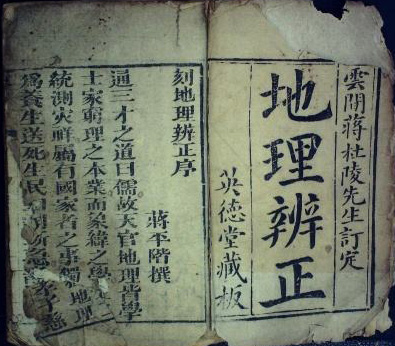 雲間蔣杜陵先生訂定
地理辨正
英德堂藏板
刻地理辨正序
蔣平階撰
通三才之道曰儒故天官地理皆學
士家窮理之本業而象緯之學
統測灾祥屬有國家者之事獨地理
為養生送死生民日用所急孝子慈